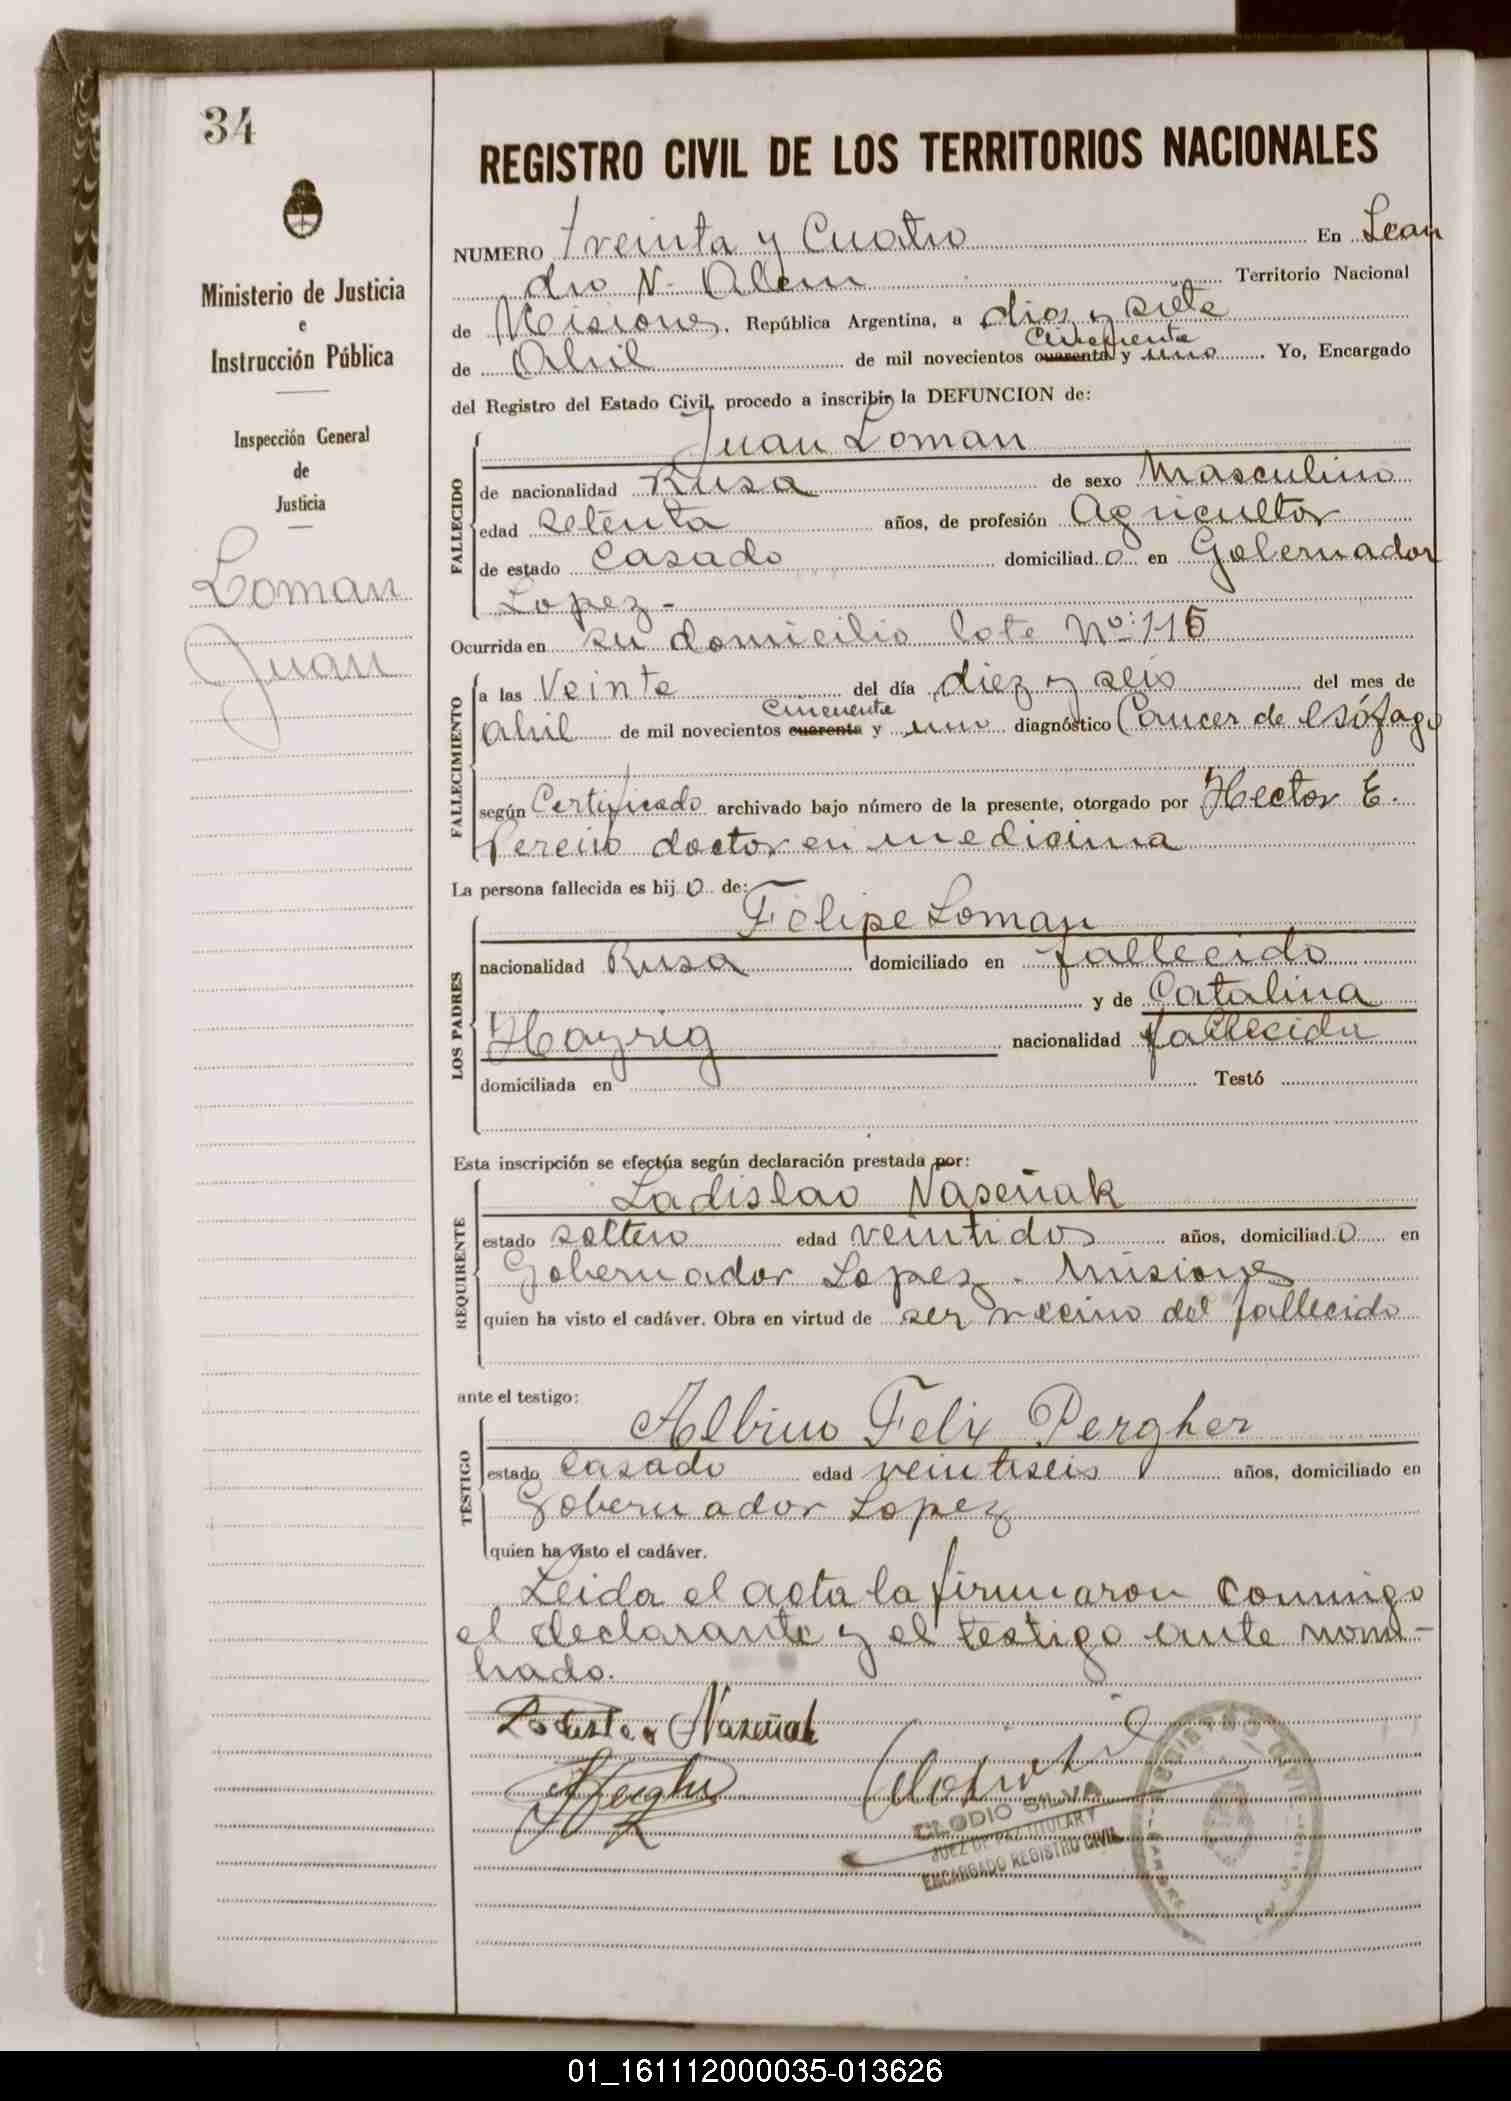 34
Ministerio de Justicia
e
Instrucción Pública
Inspección General
de
Justicia
Loman
Juan
REGISTRO CIVIL DE LOS TERRITORIOS NACIONALES
NUMERO Treinta y Cuatro En Lean
dro N. Alem Territorio Nacional
de Misiones, República Argentina, a diez y siete
Cincuenta
de Abril de mil novecientos cuarenta y uno Yo, Encargado
del Registro del Estado Civil, procedo a inscribir la DEFUNCION de:
FALLECIDO
Juan Loman
de nacionalidad Rusa de sexo Masculino
edad setenta años, de profesión Agricultor
de estado Casado domiciliad o en Gobernador
Lopez -
Ocurrida en su domicilio lote Nº: 115
FALLECIMIENTO
a las Veinte del día diez y seis del mes de
Cincuenta
Abril de mil novecientos cuarenta y uno diagnóstico Cancer de esófago
según Certificado archivado bajo número de la presente, otorgado por Hector E.
doctor en medicina
La persona fallecida es hij o de:
LOS PADRES
Felipe Loman
nacionalidad Rusa domiciliado en fallecido
y de Catalina
Hayrig nacionalidad fallecida
domiciliada en Testó
Esta inscripción se efectúa según declaración prestada por:
REQUIRENTE
Ladislao Naseñak
estado soltero edad veintidos años, domiciliad o en
Gobernador Lopez - Misiones
quien ha visto el cadáver. Obra en virtud de ser vecino del fallecido
ante el testigo:
TESTIGO
Albino Felix Pergher
estado Casado edad veintiseis años, domiciliado en
Gobernador Lopez
quien ha visto el cadáver.
Leida el acta la firmaron conmigo
el declarante y el testigo ante nom-
brado.
Naseñak
CLODIO SILVA
JUEZ DE PAZ TITULAR Y
ENCARGADO REGISTRO CIVIL
01_161112000035-013626